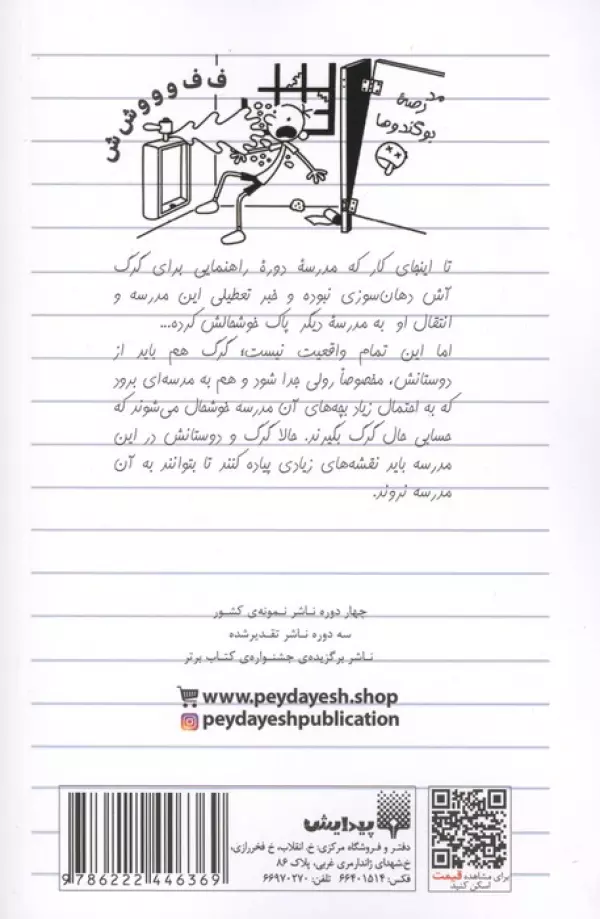 ف ف و و و ش ش ش
مدرسهٔ
بوگندوها
تا اینجای کار که مدرسهٔ دورهٔ راهنمایی برای گرگ
آش دهان‌سوزی نبوده و خبر تعطیلی این مدرسه و
انتقال او به مدرسهٔ دیگر پاک خوشحالش کرده...
اما این تمام واقعیت نیست؛ گرگ هم باید از
دوستانش، مخصوصاً رولی جدا شود و هم به مدرسه‌ای برود
که به احتمال زیاد بچه‌های آن مدرسه خوشحال می‌شوند که
حسابی حال گرگ بگیرند. حالا گرگ و دوستانش در این
مدرسه باید نقشه‌های زیادی پیاده کنند تا بتوانند به آن
مدرسه نروند.
چهار دوره ناشر نمونه‌ی کشور
سه دوره ناشر تقدیرشده
ناشر برگزیده‌ی جشنواره‌ی کتاب برتر
www.peydayesh.shop
peydayeshpublication
پیدایش
دفتر و فروشگاه مرکزی: خ. انقلاب، خ فخررازی،
خ‌شهدای ژاندارمری غربی، پلاک ۸۶
فکس: ۶۶۴۰۱۵۱۴ تلفن: ۶۶۹۷۰۲۷۰
برای مشاهده قیمت
اسکن کنید
9 786222 446369